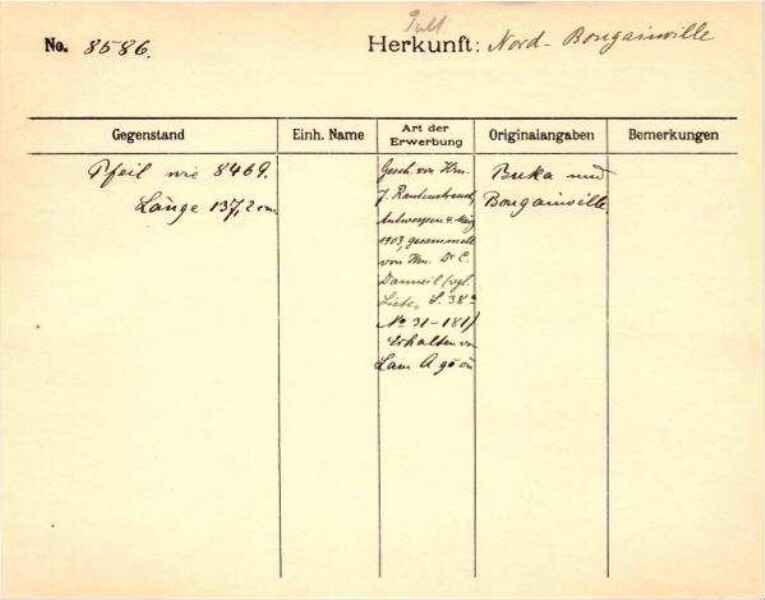 No. 8586.
Herkunft: Nord-Bougainville
Gegenstand
Einh. Name
Art der Erwerbung
Originalangaben
Bemerkungen
Pfeil wie 8469.
Länge 137,2 cm
Gesch. von Hrn.
J. Rautenstrauch,
Antwerpen 4. März
1903, gesammelt
von Hrn. Dr C.
Danneil (vgl.
Liste, S. 38
No 31-181)
Erhalten von
Lam
Buka und
Bougainville.